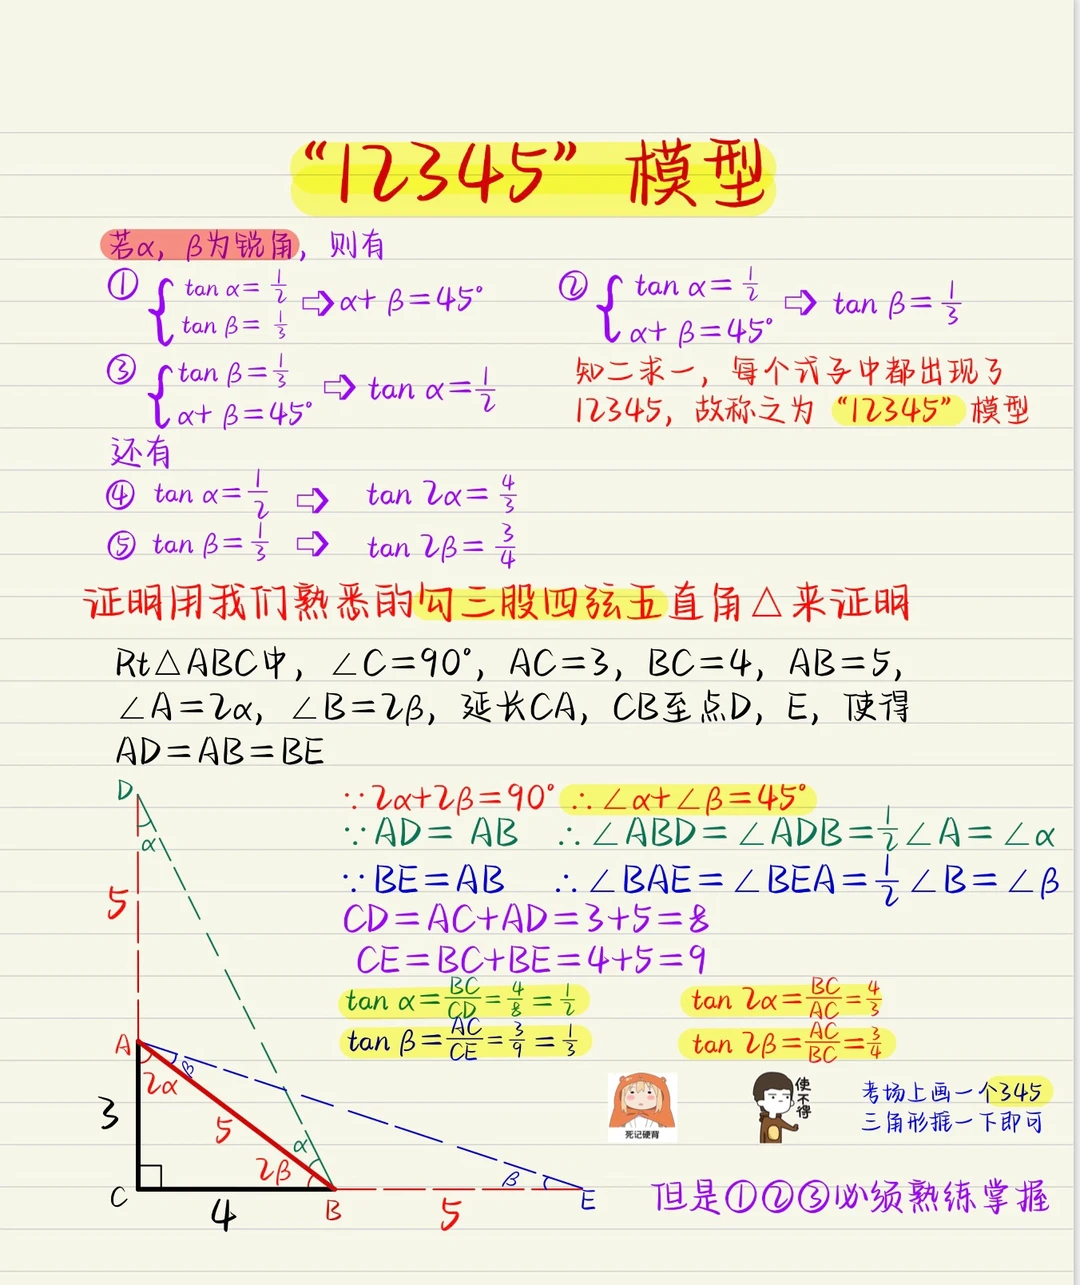 “12345” 模型
若α，β为锐角，则有
① { tan α=1/2 tan β=1/3 ⇨ α+β=45°
② { tan α=1/2 α+β=45° ⇨ tan β=1/3
③ { tan β=1/3 α+β=45° ⇨ tan α=1/2
知二求一，每个式子中都出现了
12345，故称之为 “12345” 模型
还有
④ tan α=1/2 ⇨ tan 2α=4/3
⑤ tan β=1/3 ⇨ tan 2β=3/4
证明用我们熟悉的勾三股四弦五直角△来证明
Rt△ABC中，∠C=90°，AC=3，BC=4，AB=5，
∠A=2α，∠B=2β，延长CA，CB至点D，E，使得
AD=AB=BE
∵2α+2β=90° ∴∠α+∠β=45°
∵AD=AB ∴∠ABD=∠ADB=1/2∠A=∠α
∵BE=AB ∴∠BAE=∠BEA=1/2∠B=∠β
CD=AC+AD=3+5=8
CE=BC+BE=4+5=9
tan α=BC/CD=4/8=1/2
tan 2α=BC/AC=4/3
tan β=AC/CE=3/9=1/3
tan 2β=AC/BC=3/4
D
α
5
A
β
2α
3
5
α
2β
β
C
4
B
5
E
死记硬背
使不得
考场上画一个345
三角形推一下即可
但是①②③必须熟练掌握